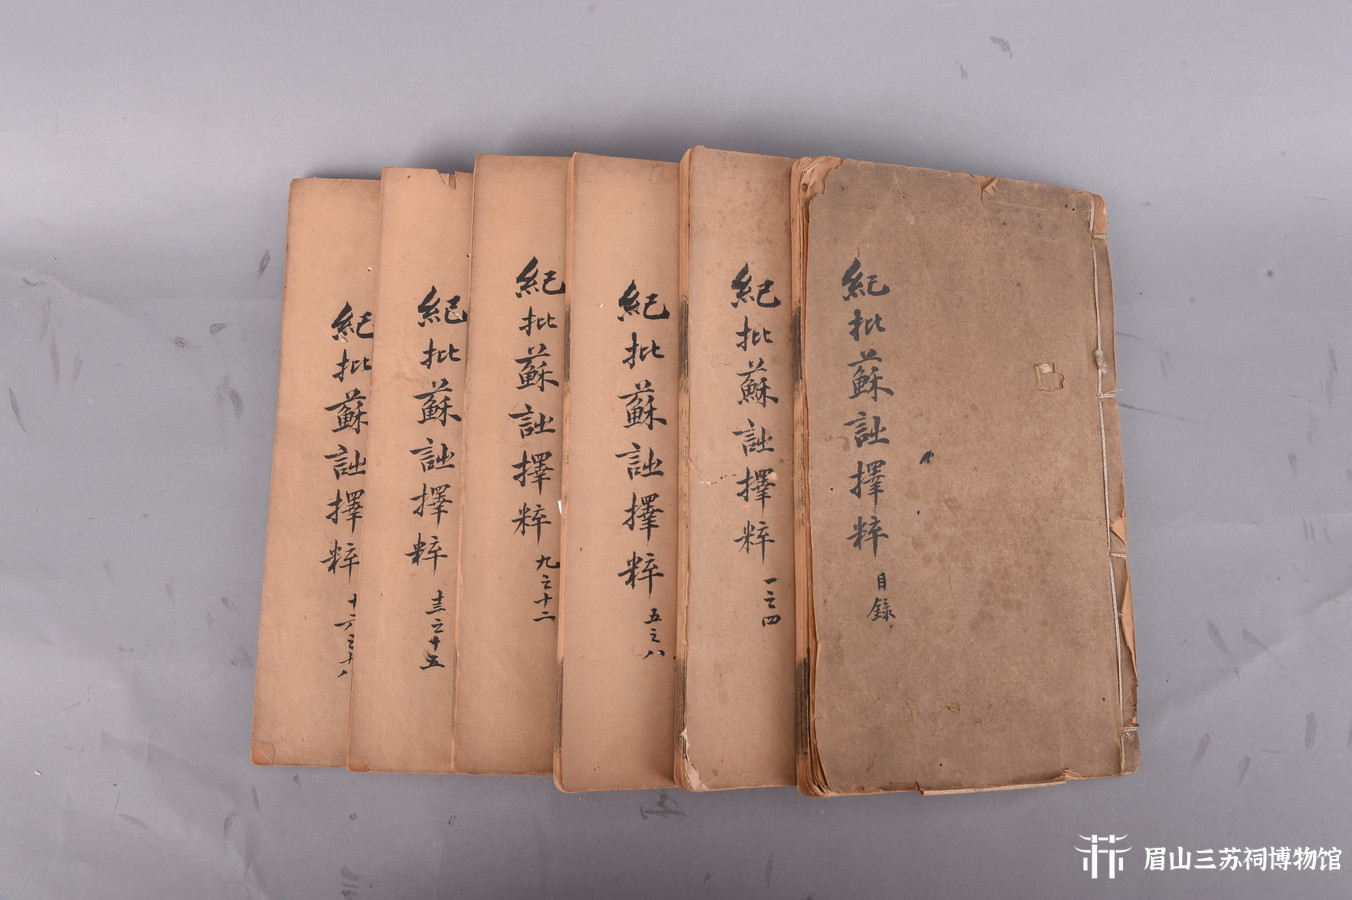 紀批蘇詩擇粹
目錄
紀批蘇詩擇粹
一之四
紀批蘇詩擇粹
五之八
紀批蘇詩擇粹
九之十二
紀批蘇詩擇粹
十三之十五
紀批蘇詩擇粹
十六之十八
眉山三苏祠博物馆